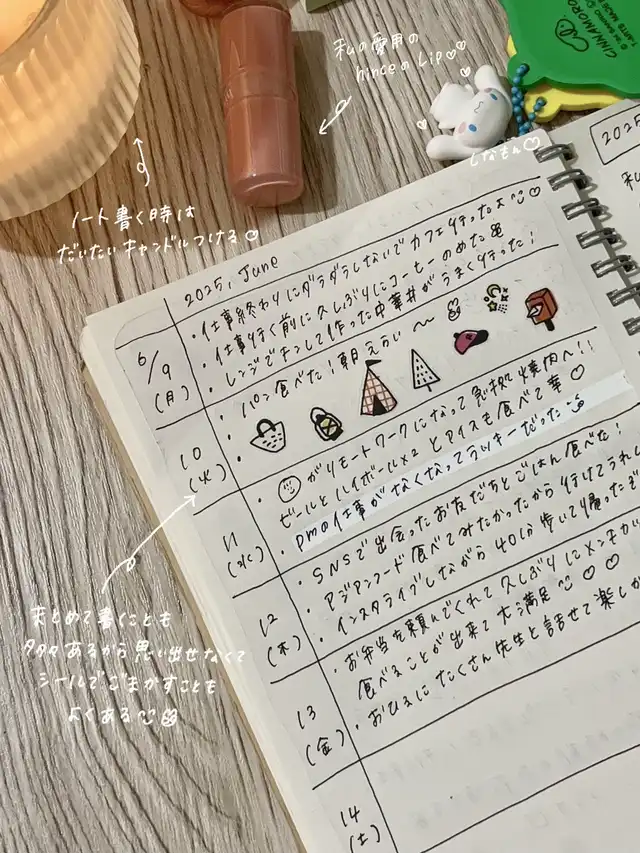 CINNAMOROLL
私の愛用の
hinceのLip♡♡
しなもん♡
ノート書く時は
だいたいキャンドルつける♡
2025, June
2025
6/9
(月)
・仕事終わりにダラダラしないでカフェ行ったよ♡
・仕事行く前に久しぶりにコーヒーのめた
・レンジでチンして作った中華丼がうまく行った!
10
(火)
・パン食べた!朝えらい〜
・
・
11
(水)
・がリモートワークになって急拠焼肉へ!!
ビールとハイボール×2とアイスも食べて幸♡
・pmの仕事がなくなってラッキーだった
12
(木)
・SNSで出会ったお友だちとごはん食べた!
・アジアンフード食べてみたかったから行けてうれし
・インスタライブしながら40分歩いて帰ったぞ
13
(金)
・お弁当を頼んでくれて久しぶりにメンチカ
食べることが出来て大満足♡♡
・おひるにたくさん先生と話せて楽し
14
(土)
まとめて書くことも
多々あるから思い出せなくて
シールでごまかすことも
よくある